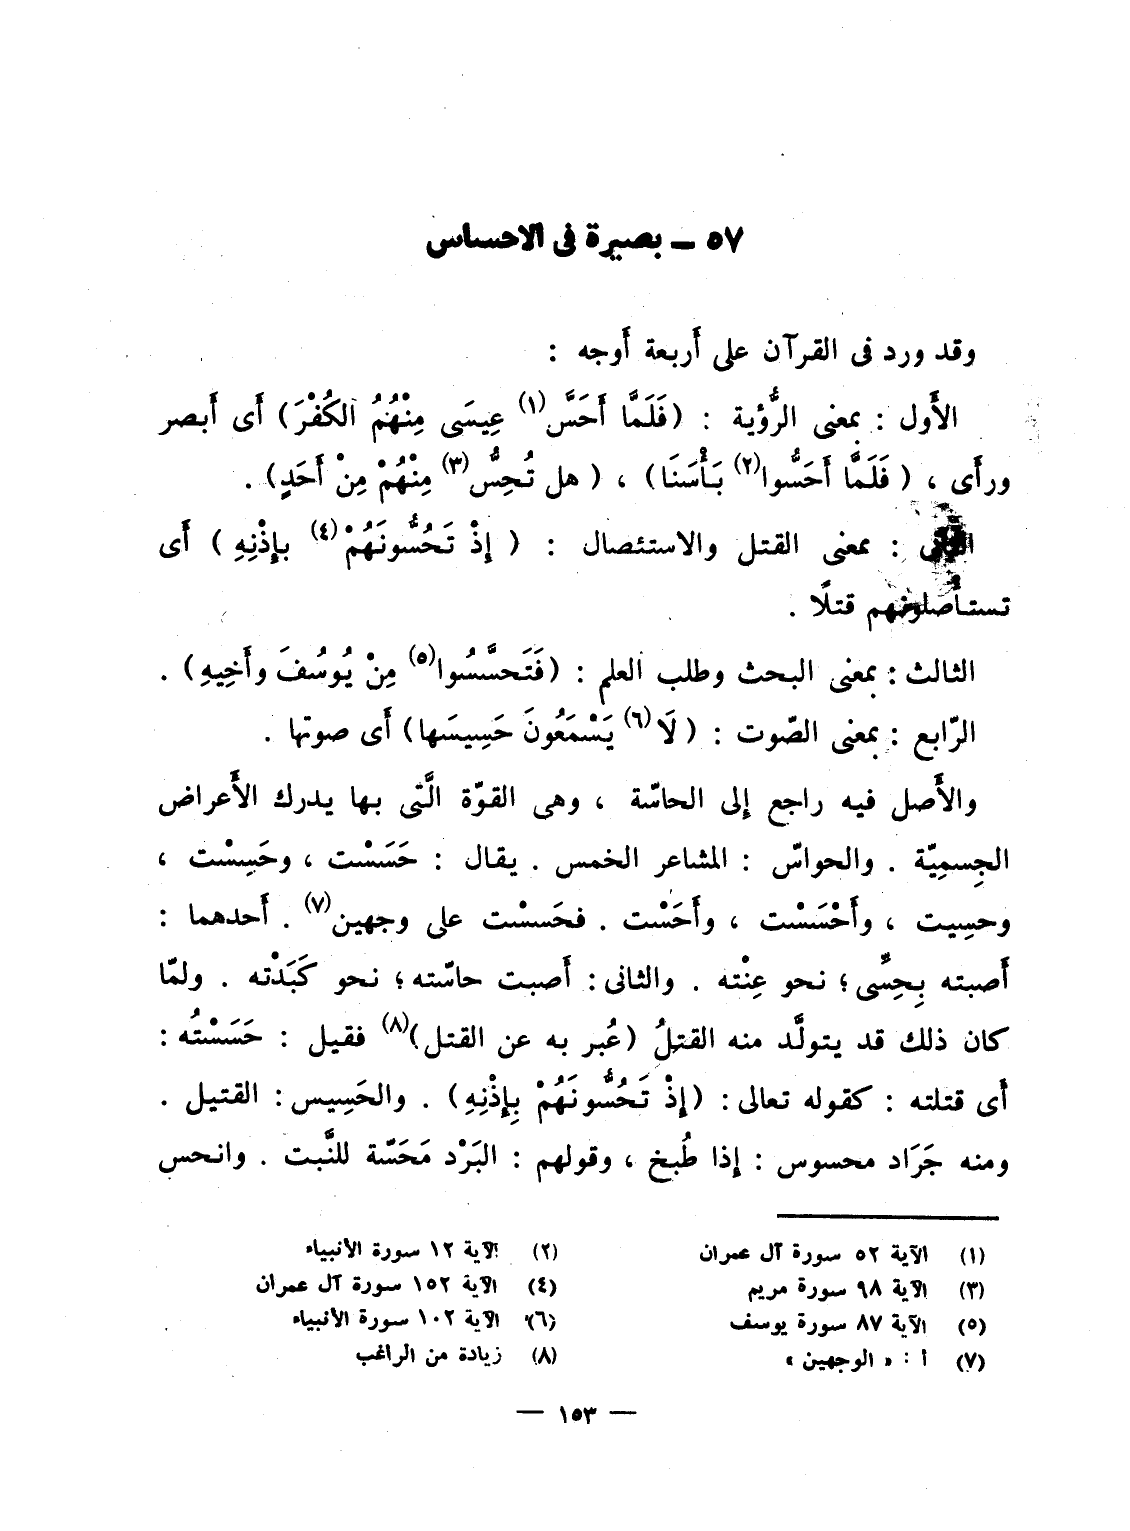 ٥٧ ــ بصيرة فى الاحساس
وقد ورد فى القرآن على أَربعة أَوجه :
الأَول : بمعنى الرُّؤية : (فَلَمَّا أَحَسَّ(١) عِيسَى مِنْهُمُ الكُفْرَ) أَى أَبصر
ورأَى ، (فَلَمَّا أَحَسُّوا(٢) بَأْسَنَا) ، (هل تُحِسُّ(٣) مِنْهُمْ مِنْ أَحَدٍ) .
الثانى : بمعنى القتل والاستئصال : (إِذْ تَحُسُّونَهُمْ(٤) بإِذْنِهِ) أَى
تستأْصلونهم قتلًا .
الثالث : بمعنى البحث وطلب العلم : (فَتَحسَّسُوا(٥) مِنْ يُوسُفَ وأَخِيهِ) .
الرّابع : بمعنى الصّوت : (لَا(٦) يَسْمَعُونَ حَسِيسَها) أَى صوتها .
والأَصل فيه راجع إلى الحاسّة ، وهى القوّة الَّتى بها يدرك الأَعراض
الجِسمِيّة . والحواسّ : المشاعر الخمس . يقال : حَسَسْت ، وحَسِسْت ،
وحسِيت ، وأَحْسَسْت ، وأَحَسْت . فحَسسْت على وجهين(٧) . أَحدهما :
أَصبته بِحِسِّى ؛ نحو عِنْته . والثانى : أَصبت حاسّته ؛ نحو كَبَدْته . ولمّا
كان ذلك قد يتولَّد منه القتلُ (عُبر به عن القتل)(٨) فقيل : حَسَسْتُه :
أَى قتلته : كقوله تعالى : (إِذْ تَحُسُّونَهُمْ بِإِذْنِهِ) . والحَسِيس : القتيل .
ومنه جَرَاد محسوس : إذا طُبخ ، وقولهم : البَرْد مَحَسّة للنَّبت . وانحس
(١) الآية ٥٢ سورة آل عمران
(٢) الآية ١٢ سورة الأنبياء
(٣) الآية ٩٨ سورة مريم
(٤) الآية ١٥٢ سورة آل عمران
(٥) الآية ٨٧ سورة يوسف
(٦) الآية ١٠٢ سورة الأنبياء
(٧) أ : « الوجهين »
(٨) زيادة من الراغب
— ١٥٣ —